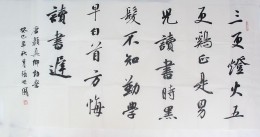 三更燈火五
更鷄正是男
兒讀書時黑
髮不知勤學
早白首方悔
讀書遲
唐顔真卿勸學
癸巳年秋月